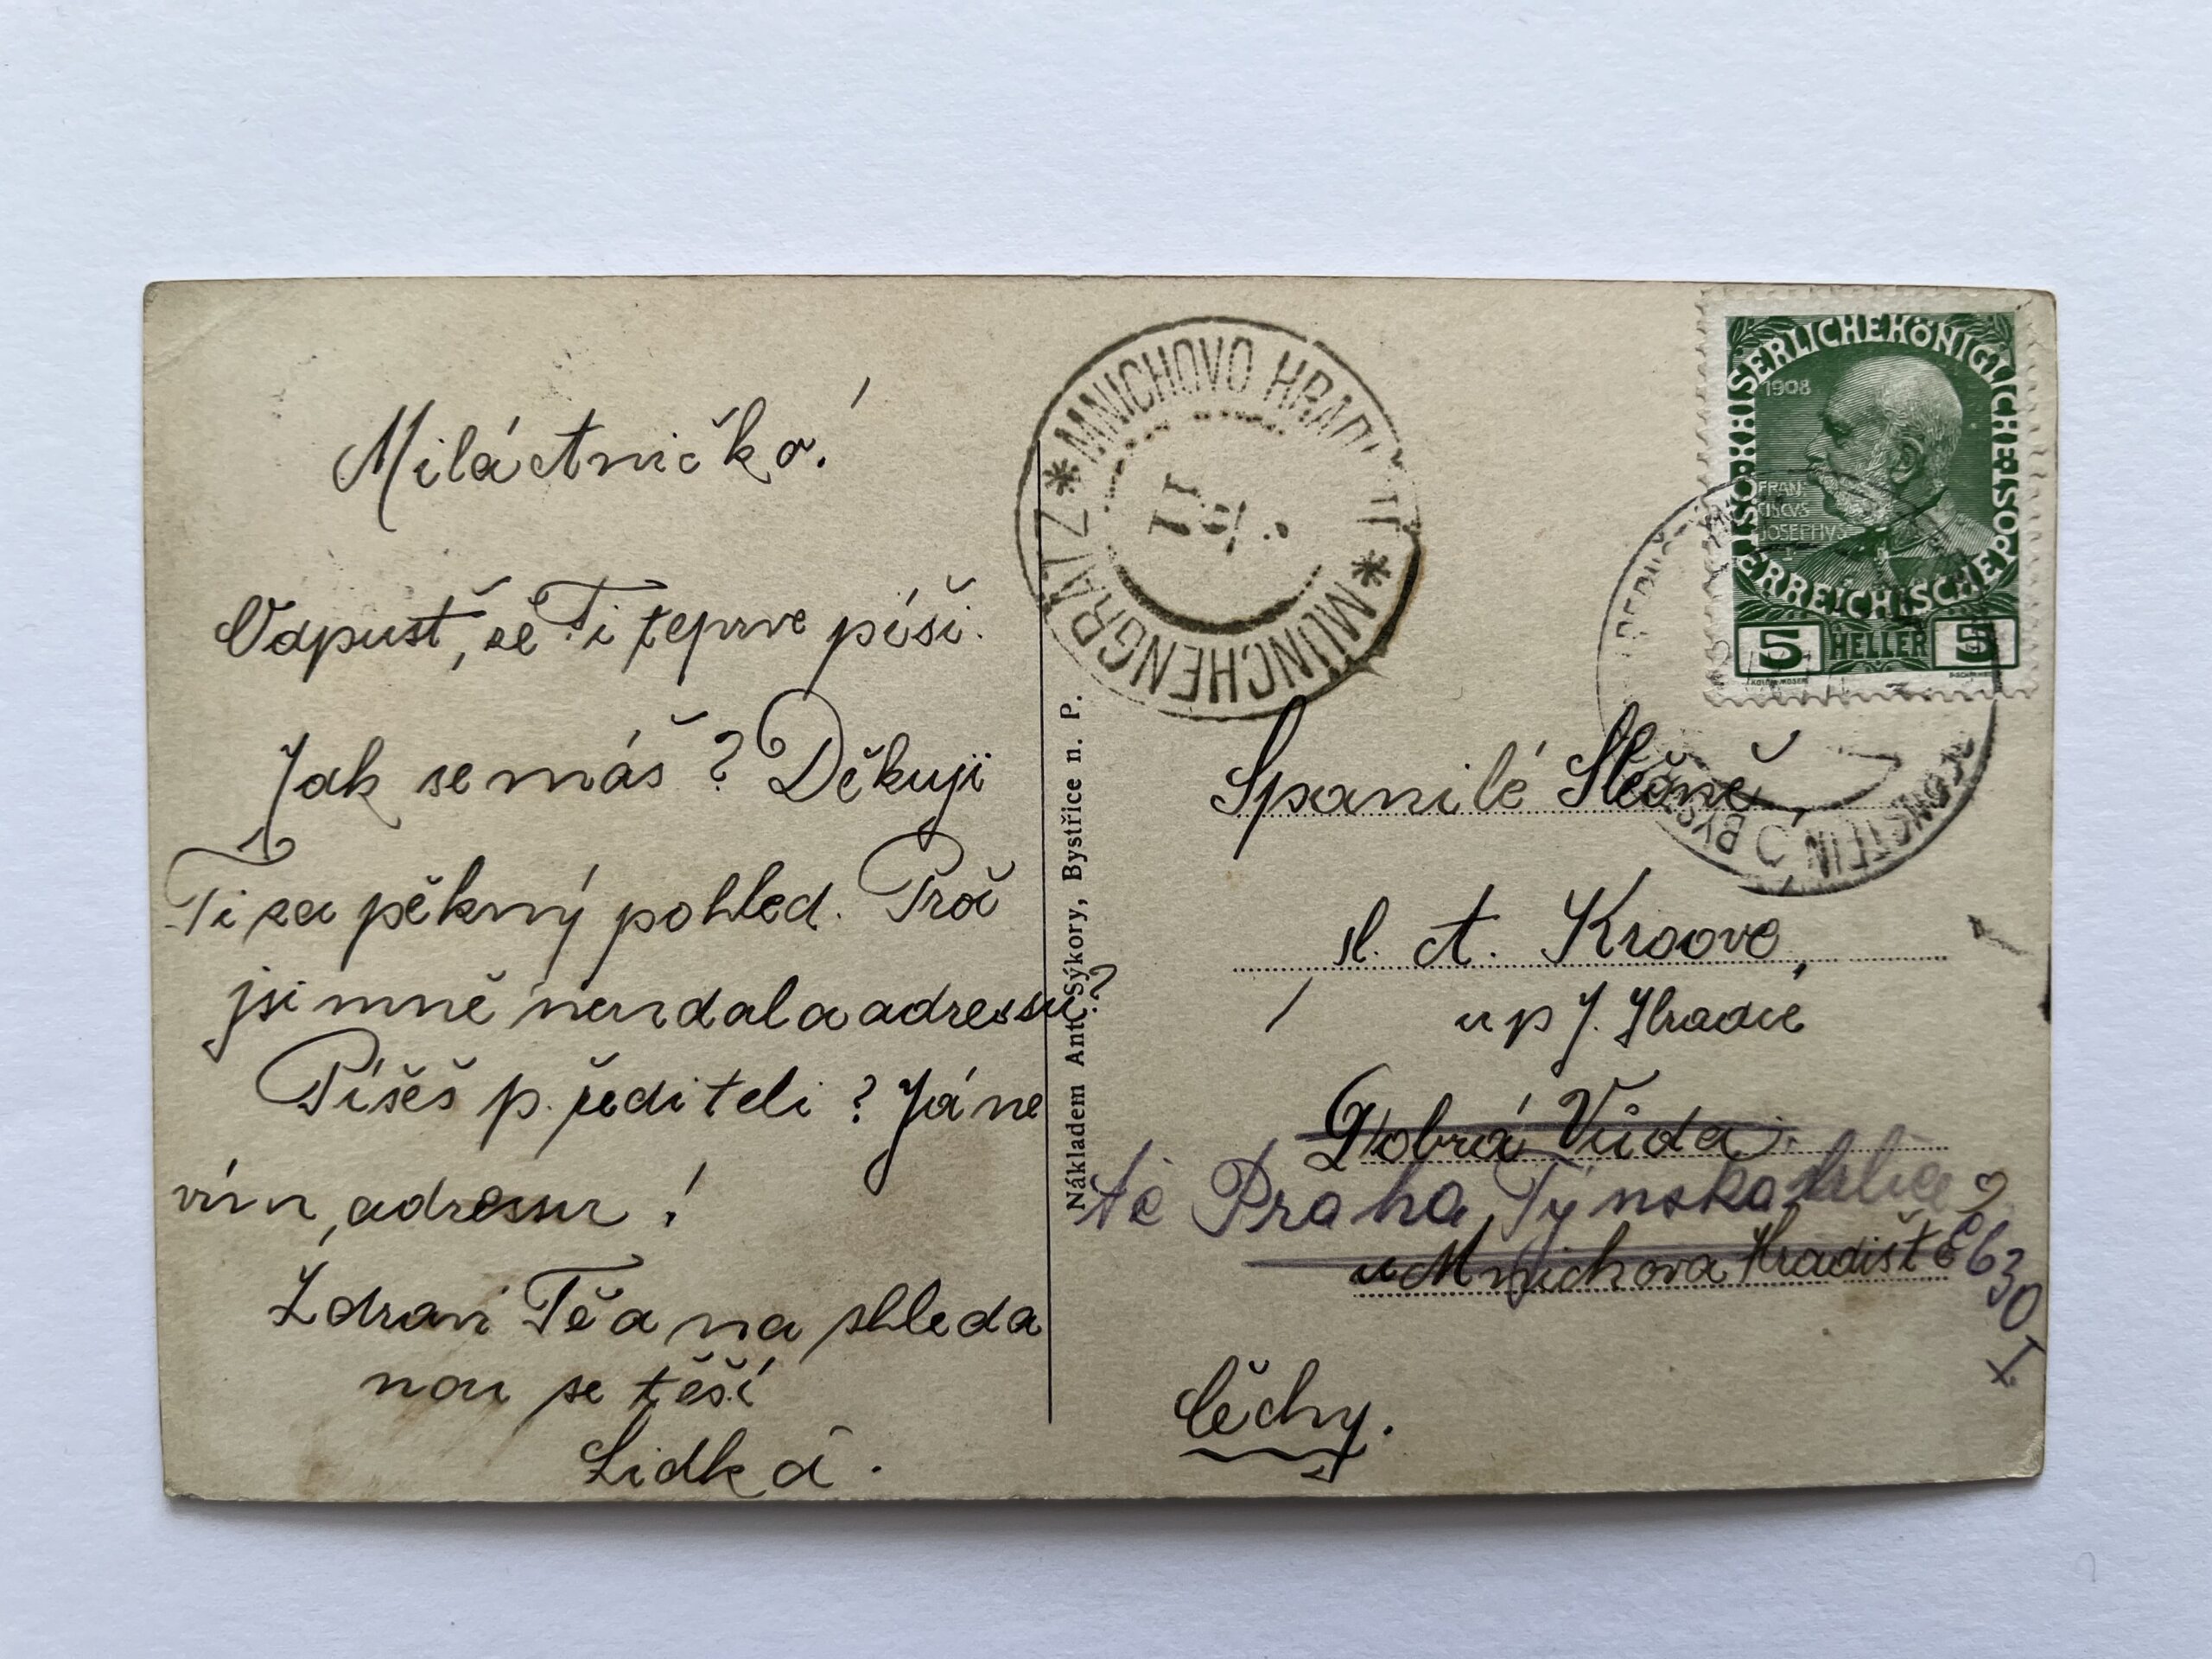 Milá Aničko!
Odpusť, že Ti teprve píši.
Jak se máš? Děkuji
Ti za pěkný pohled. Proč
jsi mně neudala adressu?
Píšeš p. řediteli? Já ne
vím adressu!
Zdraví Tě a na shleda
nou se těší
Lidka.
Nákladem Ant. Sýkory, Bystřice n. P.
* MNICHOVO HRAD
* MÜNCHENGRÄTZ
II
KAISERLICHE KÖNIGLICHE
ÖSTERREICHISCHE POST
1908
FRAN
CISCVS
JOSEPHVS
5 HELLER 5
BYST
Spanilé Slečně,
sl. A.
u p J.
Dobrá Vůda
Praha Týnská ulice
u Mnichova Hradiště
č 630
I.
Čechy.